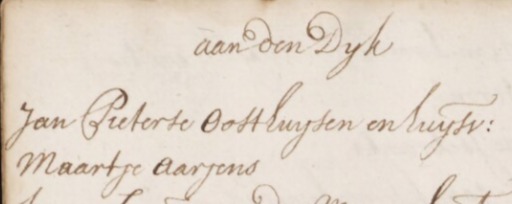 aan den Dyk
Jan Pieterse Oosthuysen en huysv:
Maartje Aarjens